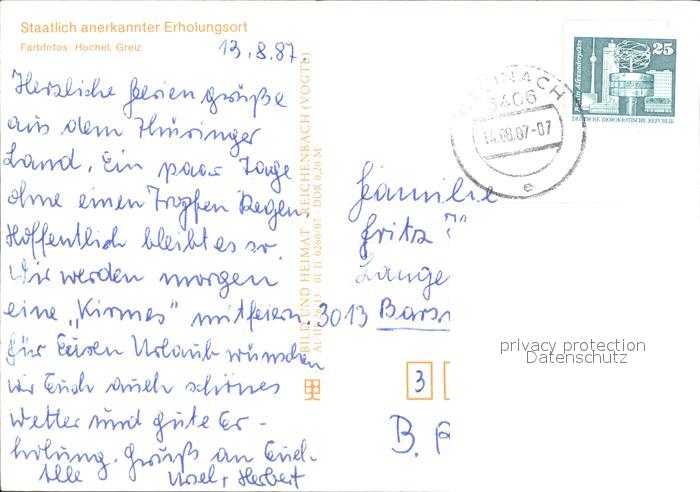 Staatlich anerkannter Erholungsort
Farbfotos: Hochel, Greiz
13.8.87.
Herzliche Feriengrüße
aus dem Thüringer
Land. Ein paar Tage
ohne einen Tropfen Regen.
Hoffentlich bleibt es so.
Wir werden morgen
eine „Kirmes" mitfeiern.
Für Euren Urlaub wünschen
wir Euch auch schönes
Wetter und gute Er-
holung. Gruß an Euch
Alle Ursel, Herbert
BILD UND HEIMAT REICHENBACH (VOGTL)
01 11 0260/07 DDR 0,20 M
6406
14.08.87-07
e
25
Berlin, Alexanderplatz
DEUTSCHE DEMOKRATISCHE REPUBLIK
Familie
Fritz
Lange
3013 Bars
3
B.
privacy protection
Datenschutz